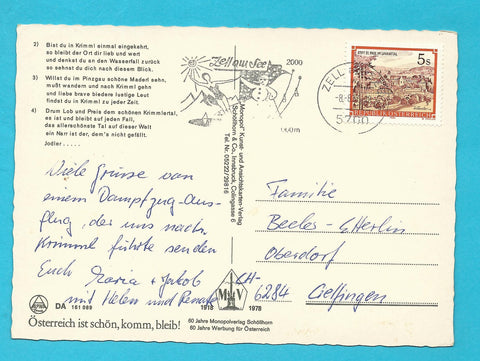 2) Bist du in Krimml einmal eingekehrt,
so bleibt der Ort dir lieb und wert
und denkst du an den Wasserfall zurück
so sehnst du dich nach diesem Blick.
3) Willst du im Pinzgau schöne Maderl sehn,
mußt wandern und nach Krimml gehn
und liebe brave biedere lustige Leut
findest du in Krimml zu jeder Zeit.
4) Drum Lob und Preis dem schönen Krimmlertal,
es ist und bleibt auf jeden Fall,
das allerschönste Tal auf dieser Welt
ein Narr ist der, dem's nicht gefällt.
Jodler .....
Viele Grüsse von
einem Dampfzug-Aus-
flug, der uns nach
Krimml führte senden
Euch Maria + Jakob
mit Helen und Renate
DA 151 089
1918 MV 1978
Österreich ist schön, komm, bleib!
60 Jahre Monopolverlag Schöllhorn
60 Jahre Werbung für Österreich
"Monopol" Kunst- und Ansichtskarten-Verlag
(Schöllhorn & Co., Innsbruck, Colingasse 6
Tel. Nr. 05222/26816
Zell am See
2000
ZELL
5700
5 s
STIFT ST. PAUL IM LAVANTTAL
REPUBLIK ÖSTERREICH
Familie
Oberdorf
CH-
6284 Gelfingen